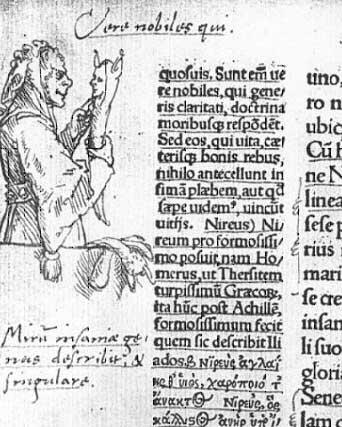 Vere nobiles qui.
quosuis. Sunt em̄ ue
re nobiles, qui gene
ris claritati, doctrina
moribusq; respōdēt.
Sed eos, qui uita, cæ
terisq; bonis rebus,
nihilo antecellunt in
fimā plæbem, aut qđ
sæpe uidemꝰ, uincūt
uitijs. Nireus) Ni
reum pro formosissi
mo posuit, nam Ho
merus, ut Thersitem
turpissimū Græcoꝝ,
ita hūc post Achillē,
formosissimum fecit
quem sic describit Ili
ados.β Νιρεὺς ἀγλαί
υἱός, χαρόποιό τ
ἄνακτος Νιρεὺς, ὃς
Mirū insaniæ ge-
nus describit, &
singulare.
tino,
ro n
ubic
Cū h
ne N
linea
sese p
rius
mari
se cre
insan
li suo
gloria
Sene
lam q